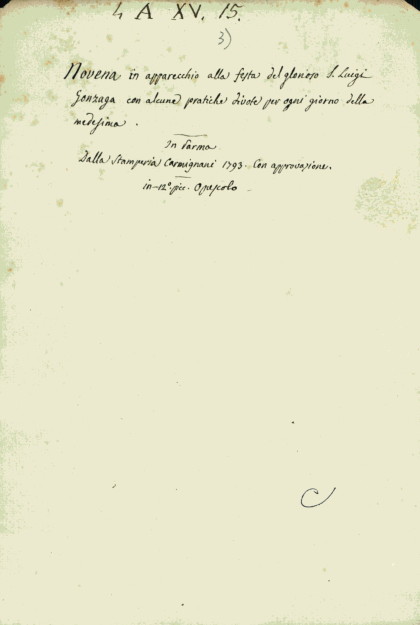 4 A XV. 15.
3)
Novena in apparecchio alla festa del glorioso S. Luigi
Gonzaga con alcune pratiche divote per ogni giorno della
medesima.
In Parma
Dalla Stamperia Carmignani 1793. Con approvazione.
in-12º. picc. Opuscolo